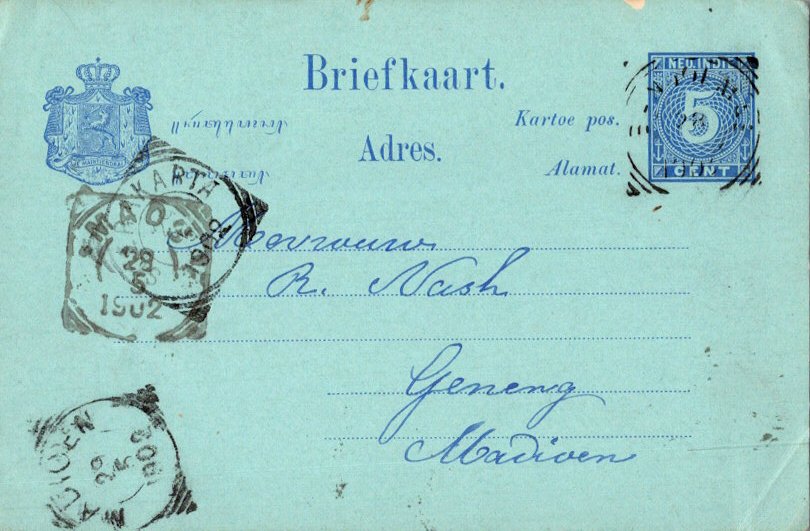 Briefkaart.
NED. INDIE
5
CENT
Kartoe pos.
Adres.
Alamat.
28
KARTA
28
5
1902
Mevrouw
R. Nash
Geneng
Madioen
MADIOEN
29
5
1902